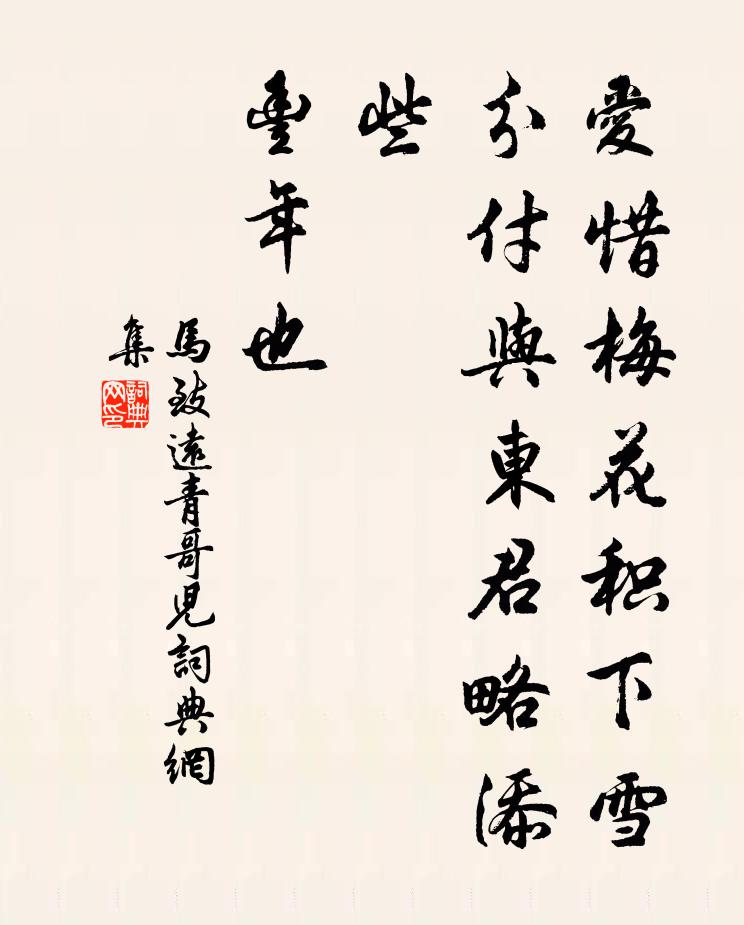 愛惜梅花积下雪
分付與東君略添
些
豐年也
馬致遠青哥兒詞典網
集
詞典網印